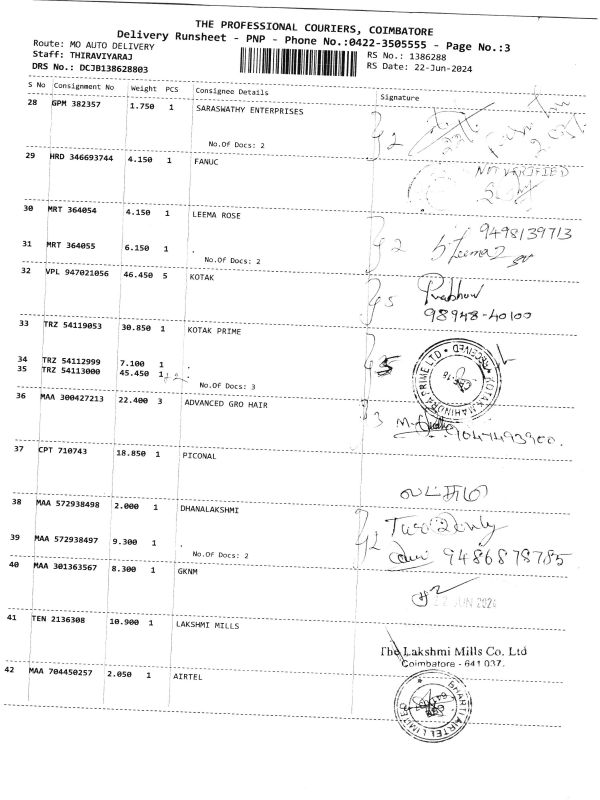 THE PROFESSIONAL COURIERS, COIMBATORE
Delivery Runsheet - PNP - Phone No.:0422-3505555 - Page No.:3
Route: MO AUTO DELIVERY
Staff: THIRAVIYARAJ
DRS No.: DCJB138628803
RS No.: 1386288
RS Date: 22-Jun-2024
S No Consignment No Weight PCS Consignee Details Signature
28 GPM 382357 1.750 1 SARASWATHY ENTERPRISES
No.Of Docs: 2
2
29 HRD 346693744 4.150 1 FANUC
NOT VERIFIED
30 MRT 364054 4.150 1 LEEMA ROSE
9498139713
31 MRT 364055 6.150 1 .
No.Of Docs: 2
2 Leema
32 VPL 947021056 46.450 5 KOTAK
5 Prabhu
98948-40100
33 TRZ 54119053 30.850 1 KOTAK PRIME
34 TRZ 54112999 7.100 1 .
35 TRZ 54113000 45.450 1 .
No.Of Docs: 3
KOTAK MAHINDRA PRIME LTD RECEIVED
36 MAA 300427213 22.400 3 ADVANCED GRO HAIR
3 9047493900.
37 CPT 710743 18.850 1 PICONAL
38 MAA 572938498 2.000 1 DHANALAKSHMI
39 MAA 572938497 9.300 1 .
No.Of Docs: 2
2 9486878785
40 MAA 301363567 8.300 1 GKNM
JUN 2024
41 TEN 2136308 10.900 1 LAKSHMI MILLS
The Lakshmi Mills Co. Ltd
Coimbatore - 641 037.
42 MAA 704450257 2.050 1 AIRTEL
BHARTI AIRTEL LIMITED